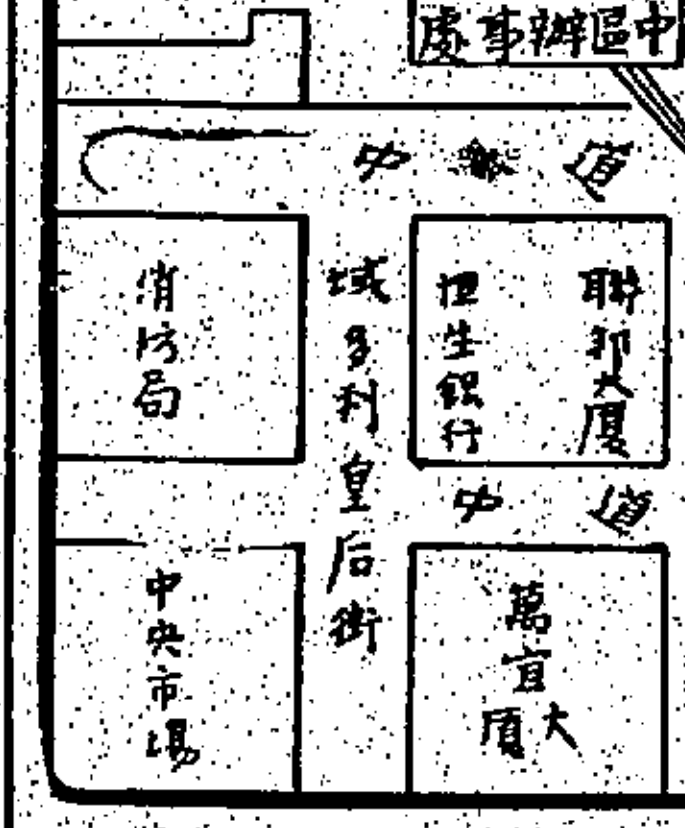 中區辦事處
中 道
消防局
域多利皇后街
恒生銀行
聯邦大廈
中 道
中央市場
萬宜大廈